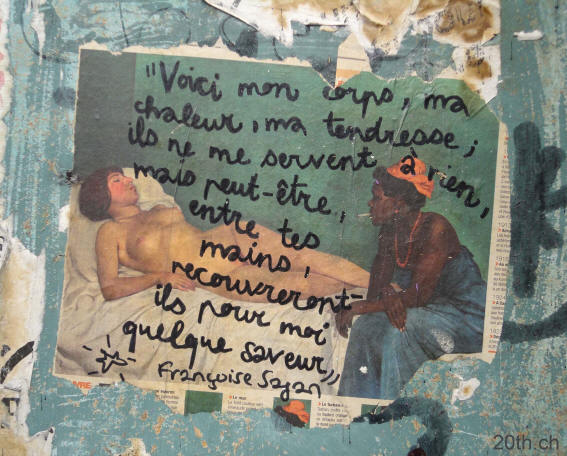 "Voici mon corps, ma
chaleur, ma tendresse;
ils ne me servent à rien,
mais peut-être,
entre tes
mains,
recouvreront-
ils pour moi
quelque saveur"
Françoise Sagan
20th.ch